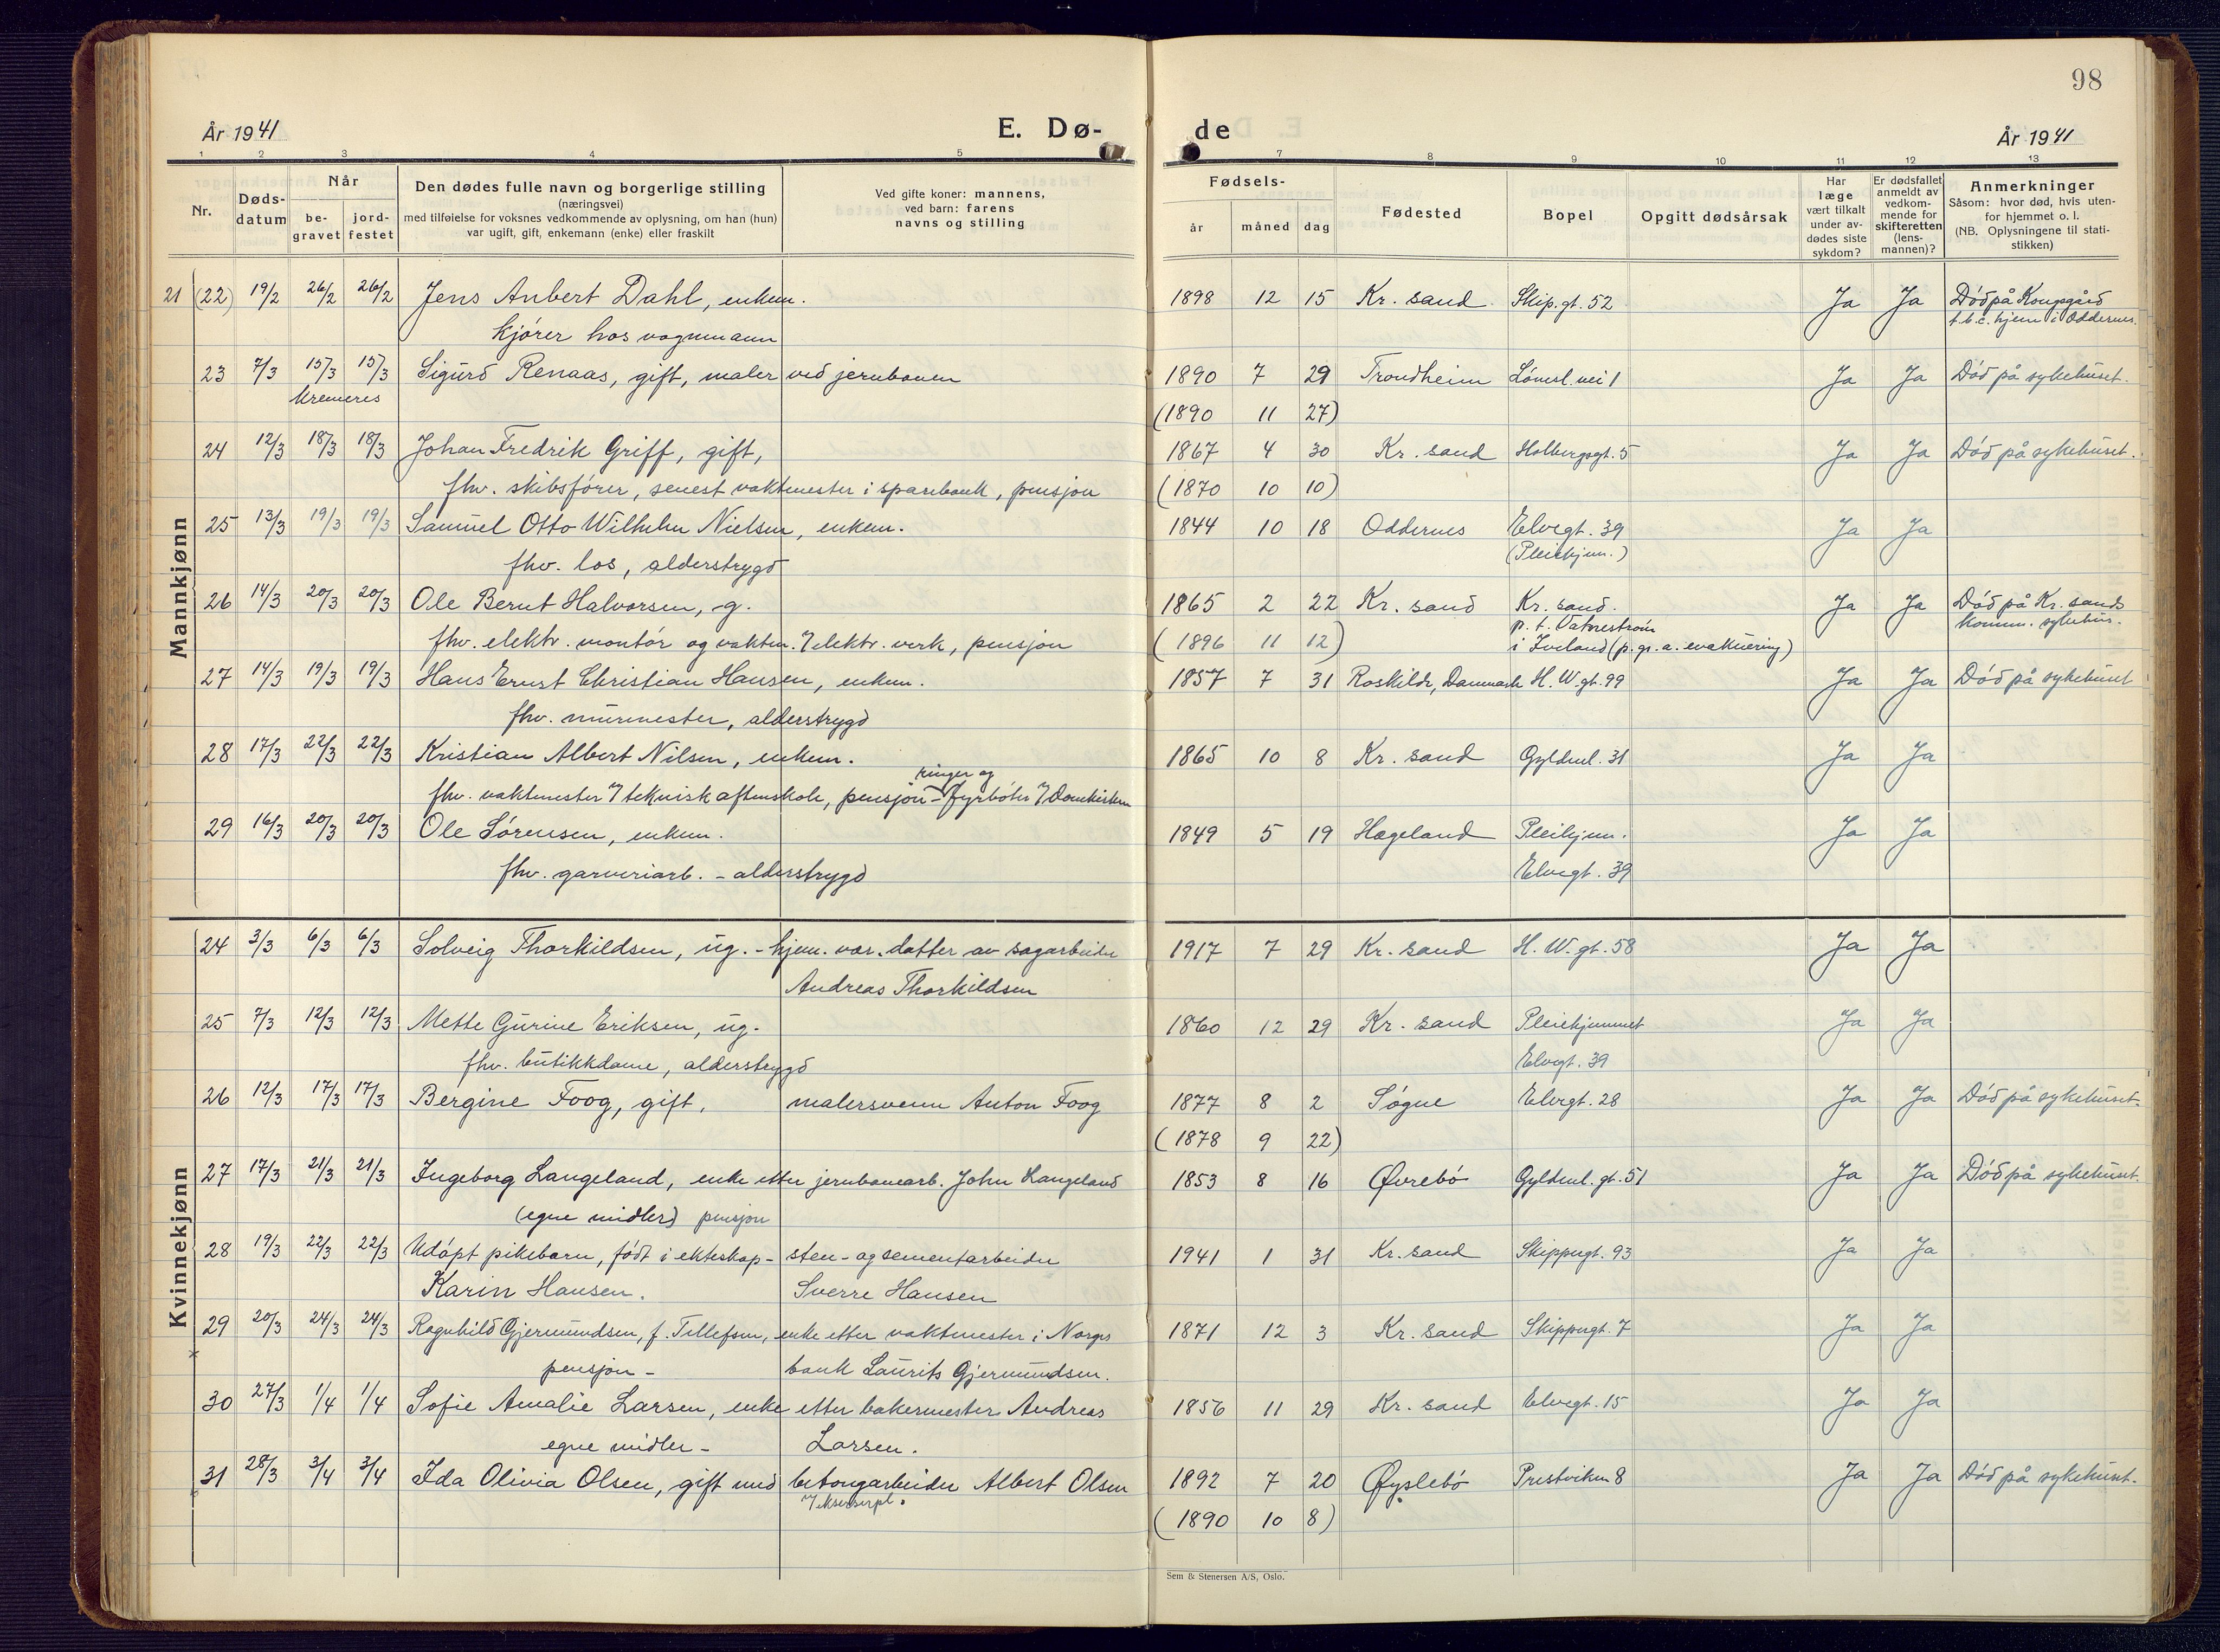 98
År 1941
E. Dø-
de
År 1941
1 2 3 4 5 7 8 9 10 11 12 13
Nr.
Døds-
datum
Når
be-
gravet
jord-
festet
Den dødes fulle navn og borgerlige stilling
(næringsvei)
med tilføielse for voksnes vedkommende av oplysning, om han (hun)
var ugift, gift, enkemann (enke) eller fraskilt
Ved gifte koner: mannens,
ved barn: farens
navns og stilling
Fødsels-
år måned dag
Fødested
Bopel
Opgitt dødsårsak
Har
læge
vært tilkalt
under av-
dødes siste
sykdom?
Er dødsfallet
anmeldt av
vedkom-
mende for
skifteretten
(lens-
mannen)?
Anmerkninger
Såsom: hvor død, hvis uten-
for hjemmet o. l.
(NB. Oplysningene til stati-
stikken)
Mannkjønn
21 (22) 19/2 26/2 26/2 Jens Anbert Dahl, enkem. 1898 12 15 Kr. sand Skip.gt. 52 Ja Ja Død på Kongsgård
kjører hos vognmann t.b.c. hjem i Oddernes.
23 7/3 15/3 15/3 Sigurd Renaas, gift, maler ved jernbanen 1890 7 29 Trondheim Lømsl. vei 1 Ja Ja Død på sykehuset.
kremeres (1890 11 27)
24 12/3 18/3 18/3 Johan Fredrik Griff, gift, 1867 4 30 Kr. sand Holbergsgt. 5 Ja Ja Død på sykehuset.
fhv. skibsfører, senest vaktmester i sparebank, pensjon (1870 10 10)
25 13/3 19/3 19/3 Samuel Otto Wilhelm Nielsen, enkem. 1844 10 18 Oddernes Elvegt. 39 Ja Ja
fhv. los, alderstrygd (Pleiehjem.)
26 14/3 20/3 20/3 Ole Bernt Halvorsen, g. 1865 2 22 Kr. sand Kr. sand. Ja Ja Død på Kr. sands
p. t. Vatnestrøm komm. sykehus.
fhv. elektr. montør og vaktm. v/ elektr. verk, pensjon (1896 11 12) i Iveland (p. gr. a. evakuering)
27 14/3 19/3 19/3 Hans Ernst Christian Hansen, enkem. 1857 7 31 Roskilde, Danmark H. W. gt. 99 Ja Ja Død på sykehuset
fhv. murmester, alderstrygd
28 17/3 22/3 22/3 Kristian Albert Nilsen, enkem. 1865 10 8 Kr. sand Gyldenl. 31 Ja Ja
ringer og
fhv. vaktmester v/ teknisk aftenskole, pensjon - fyrbøter v/ Domkirken
29 16/3 20/3 20/3 Ole Sørensen, enkem. 1849 5 19 Hægeland Pleiehjem. Ja Ja
fhv. garveriarb. - alderstrygd Elvegt. 39
Kvinnekjønn
24 3/3 6/3 6/3 Solveig Thorkildsen, ug. - hjem. vær. datter av sagarbeider 1917 7 29 Kr. sand H. W. gt. 58 Ja Ja
Andreas Thorkildsen
25 7/3 12/3 12/3 Mette Gurine Eriksen, ug. 1860 12 29 Kr. sand Pleiehjemmet Ja Ja
fhv. butikkdame, alderstrygd Elvegt. 39
26 12/3 17/3 17/3 Bergine Foog, gift, malersvenn Anton Foog 1877 8 2 Søgne Elvegt. 28 Ja Ja Død på sykehuset.
(1878 9 22)
27 17/3 21/3 21/3 Ingeborg Langeland, enke etter jernbanearb. John Langeland 1853 8 16 Øvrebø Gyldenl. gt. 51 Ja Ja Død på sykehuset.
(egne midler) pensjon
28 19/3 22/3 22/3 Udøpt pikebarn, født i ekteskap - sten- og sementarbeider 1941 1 31 Kr. sand Skippergt. 93 Ja Ja
Karin Hansen. Sverre Hansen
29 20/3 24/3 24/3 Ragnhild Gjermundsen, f. Tellefsen, enke etter vaktmester i Norges 1871 12 3 Kr. sand Skippergt. 7 Ja Ja
pensjon - bank Laurits Gjermundsen.
30 27/3 1/4 1/4 Sofie Amalie Larsen, enke etter bakermester Andreas 1856 11 29 Kr. sand Elvegt. 15 Ja Ja
egne midler - Larsen.
31 28/3 3/4 3/4 Ida Olivia Olsen, gift med betongarbeider Albert Olsen 1892 7 20 Øyslebø Prestviken 8 Ja Ja Død på sykehuset.
(1890 10 8)
Sem & Stenersen A/S, Oslo.